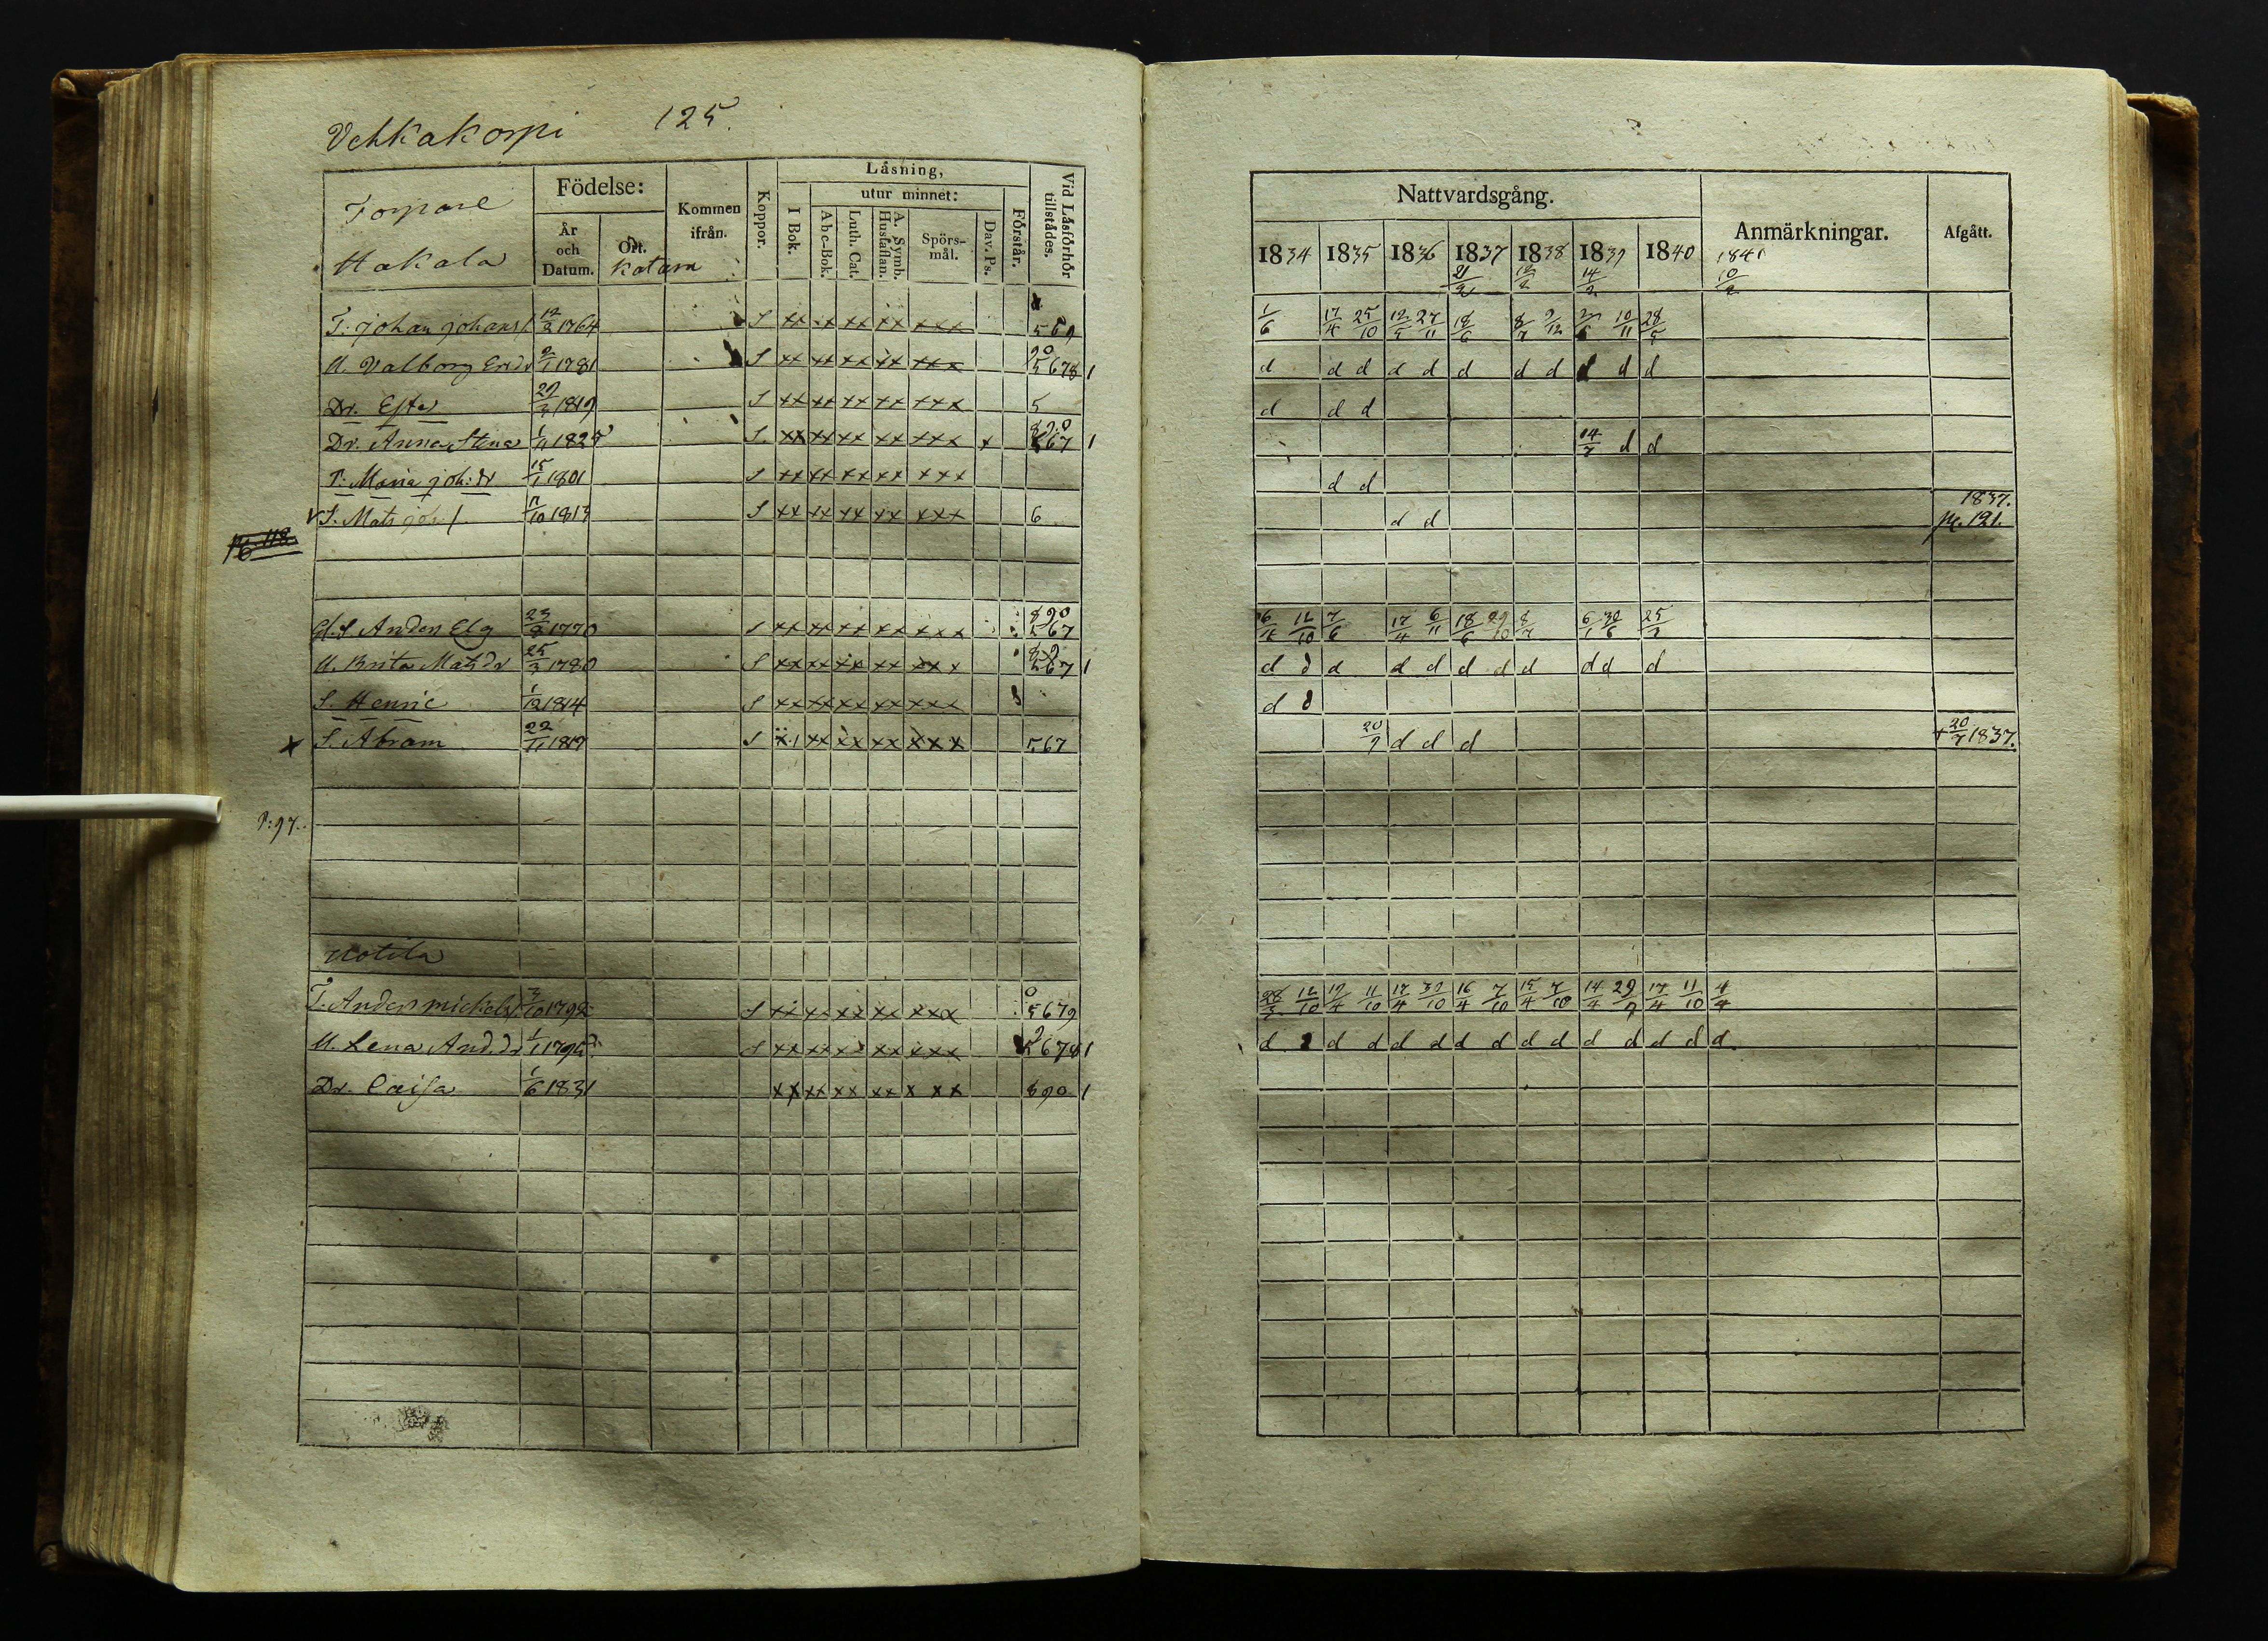 Vehkakorpi 125.
Torpare
Hakala
Födelse:
År och Datum.
Ort.
Katam
Kommen ifrån.
Koppor.
Läsning,
I Bok.
utur minnet:
Abc-Bok.
Luth. Cat.
A. Symb. Hustaflan.
Spörsmål.
Dav. Ps.
Förstår.
Vid Läsförhör tillstådes.
T. Johan Johans 12/3 1764 S xx xx xx xx xxx 569
U. Valborg Ersdr 2/1 1781 S xx xx xx xx xxx 90 5678 1
Dr. Ester 29/3 1819 S xx xx xx xx xxx 5
Dr. Anna Stina 1/9 1825 S xx xx xx xx xxx x 890 567 1
P. Maria Joh:dr 15/1 1801 S xx xx xx xx xxx
S. Mats Joh. 17/10 1813 S xx xx xx xx xxx 6
118
Gl. S Anders Elg 23/8 1770 S xx xx xx xx xxx 890 567
U. Brita Matsdr 25/3 1780 S xx xx xx xx xxx 89 567 1
S. Henric 1/12 1814 S xx xx xx xx xxx
x S. Abram 22/11 1819 S xx xx xx xx xxx 567
P:97.
Uotila
T. Anders Michels 3/10 1792 S xx xx xx xx xxx 0 5679
U. Lena And.dr 1/1 1795 S xx xx xx xx xxx 9 5678 1
Dr. Caisa 1/6 1831 xx xx xx xx xxx 890 1
Nattvardsgång.
Anmärkningar.
Afgått.
1834 1835 1836 1837 1838 1839 1840 1841
21/2 12/2 14/2 10/2
1/6 17/4 25/10 12/5 27/11 18/6 8/7 9/12 2/6 10/11 28/5
d d d d d d d d d d d
d d d
14/7 d d
d d
d d 1837. pg. 121.
26/4 12/10 7/6 17/4 6/11 18/6 29/10 8/7 6/1 30/6 25/3
d d d d d d d d d d d
d d
20/9 d d d + 20/7 1837.
28/3 12/10 19/4 11/10 17/4 30/10 16/4 7/10 15/4 7/10 14/4 29/9 17/4 11/10 4/4
d d d d d d d d d d d d d d d